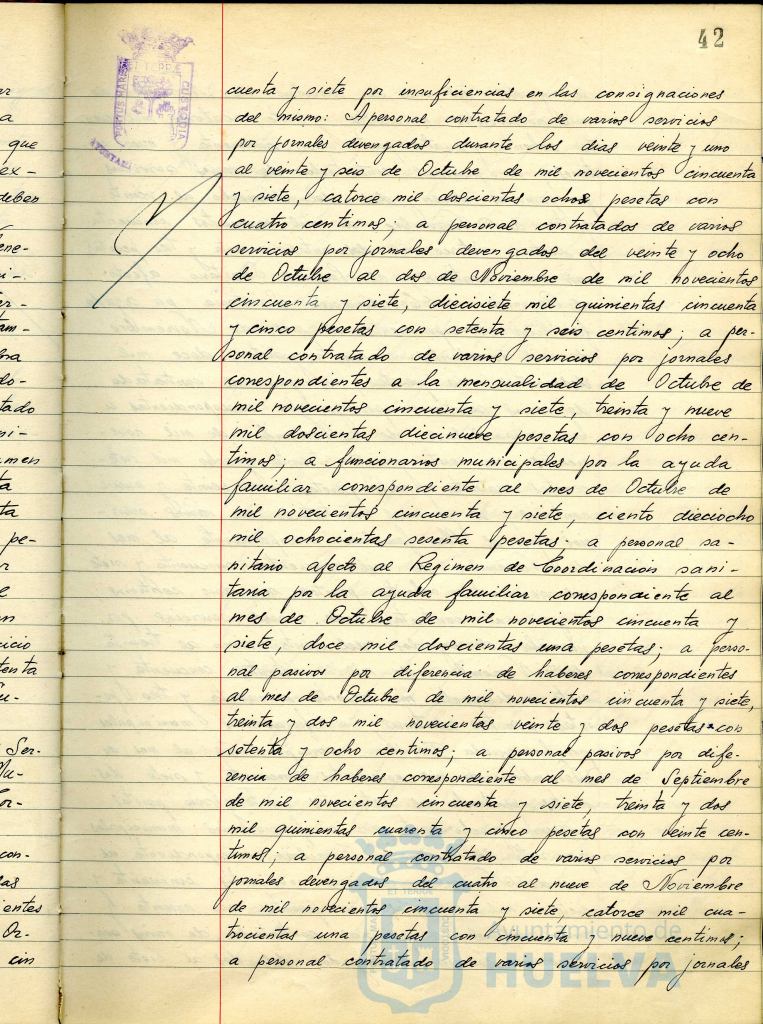 42
cuenta y siete por insuficiencias en las consignaciones
del mismo: A personal contratado de varios servicios
por jornales devengados durante los dias veinte y uno
al veinte y seis de Octubre de mil novecientos cincuenta
y siete, catorce mil doscientas ochos pesetas con
cuatro centimos; a personal contratados de varios
servicios por jornales devengados del veinte y ocho
de Octubre al dos de Noviembre de mil novecientos
cincuenta y siete, diecisiete mil quinientas cincuenta
y cinco pesetas con setenta y seis centimos; a per-
sonal contratado de varios servicios por jornales
correspondientes a la mensualidad de Octubre de
mil novecientos cincuenta y siete, treinta y nueve
mil doscientas diecinueve pesetas con ocho cen-
timos; a funcionarios municipales por la ayuda
familiar correspondiente al mes de Octubre de
mil novecientos cincuenta y siete, ciento dieciocho
mil ochocientas sesenta pesetas. a personal sa-
nitario afecto al Regimen de Coordinacion sani-
taria por la ayuda familiar correspondiente al
mes de Octubre de mil novecientos cincuenta y
siete, doce mil doscientas una pesetas; a perso-
nal pasivos por diferencia de haberes correspondientes
al mes de Octubre de mil novecientos cincuenta y siete,
treinta y dos mil novecientos veinte y dos pesetas con
setenta y ocho centimos; a personal pasivos por dife-
rencia de haberes correspondiente al mes de Septiembre
de mil novecientos cincuenta y siete, treinta y dos
mil quinientas cuarenta y cinco pesetas con veinte cen-
timos; a personal contratado de varios servicios por
jornales devengados del cuatro al nueve de Noviembre
de mil novecientos cincuenta y siete, catorce mil cua-
trocientas una pesetas con cincuenta y nueve centimos;
a personal contratado de varios servicios por jornales
Ayuntamiento de
HUELVA